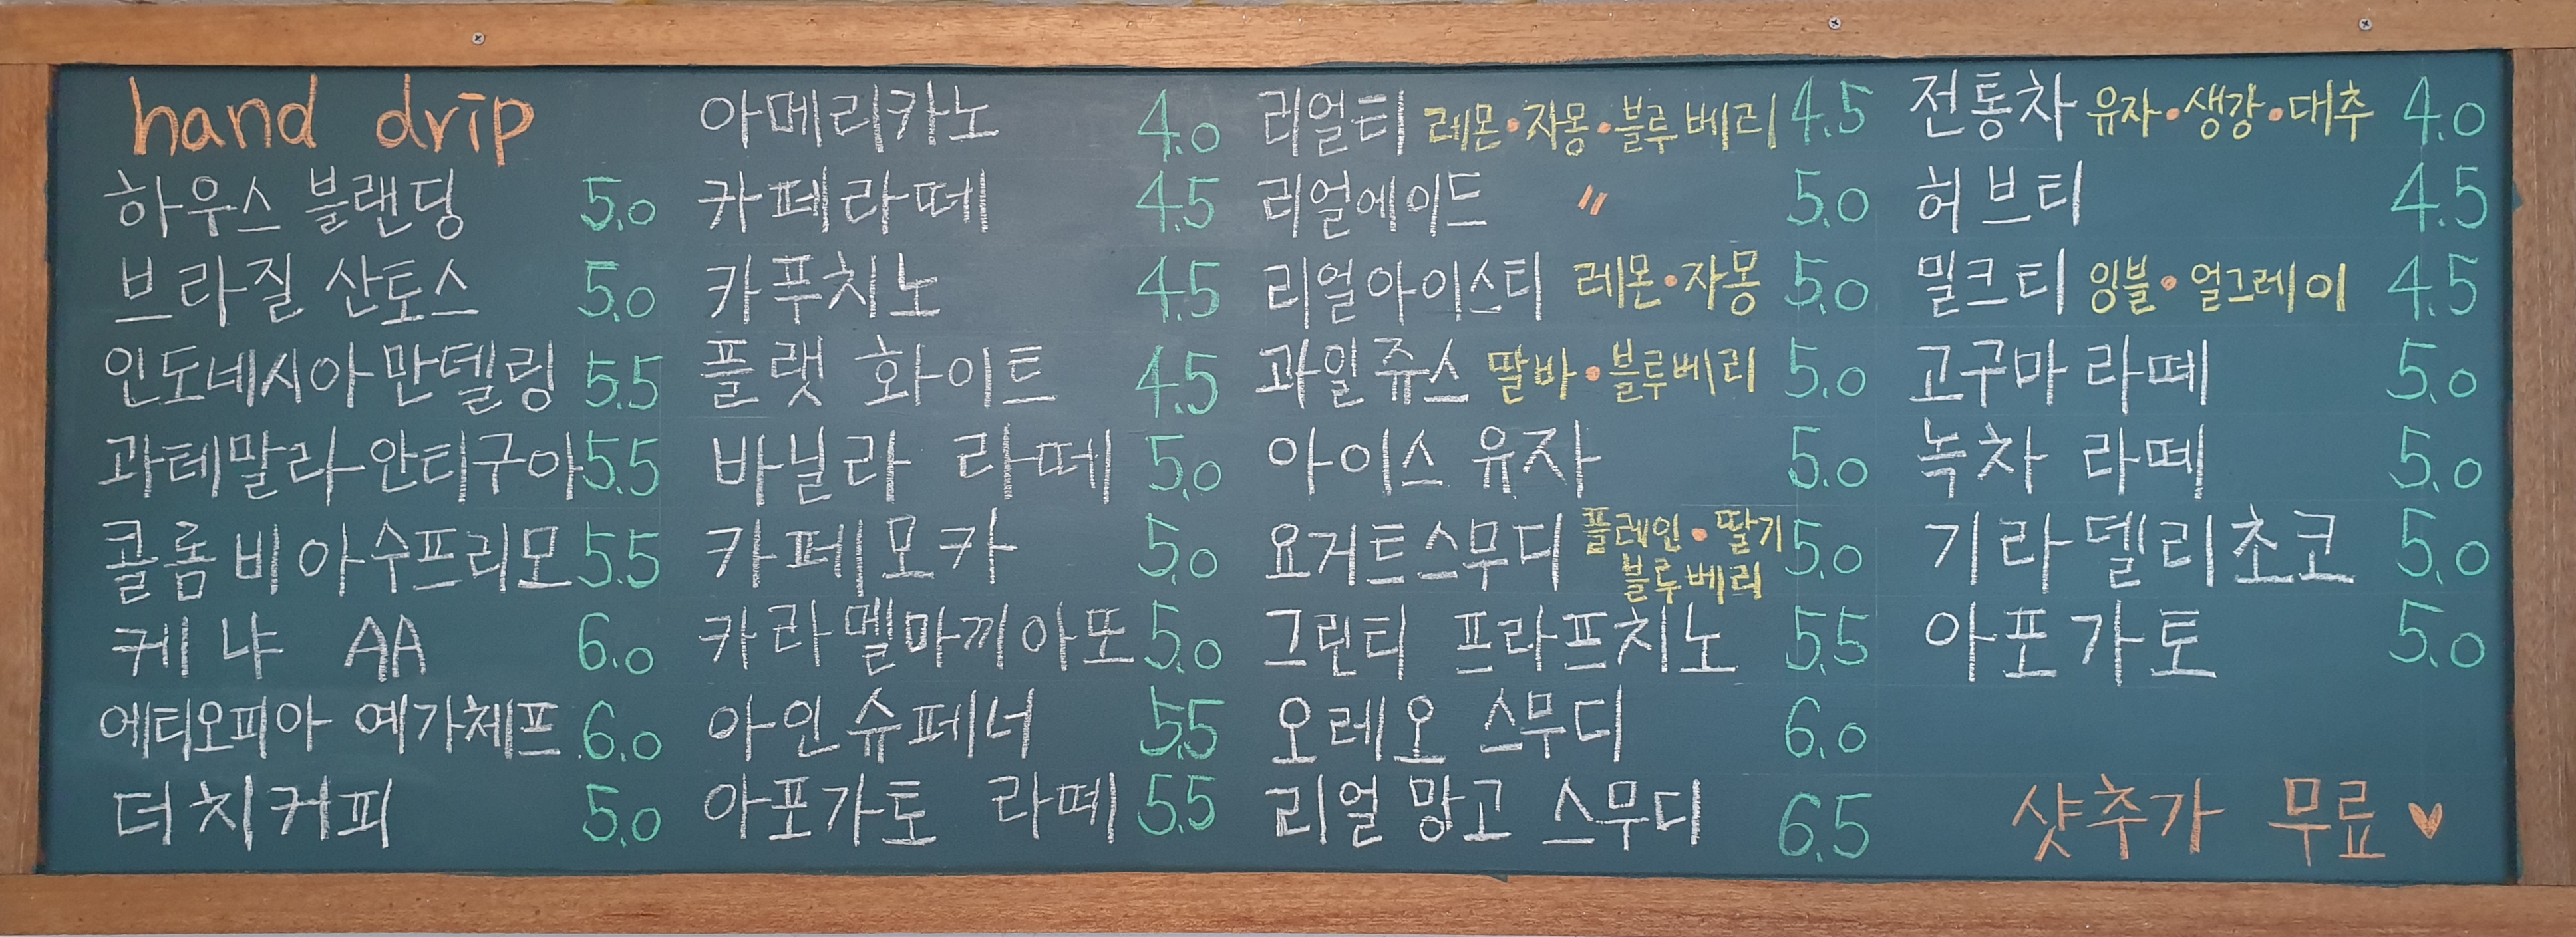 hand drip
하우스 블랜딩 5.0
브라질 산토스 5.0
인도네시아 만델링 5.5
과테말라 안티구아 5.5
콜롬비아 수프리모 5.5
케냐 AA 6.0
에티오피아 예가체프 6.0
더치커피 5.0
아메리카노 4.0
카페라떼 4.5
카푸치노 4.5
플랫 화이트 4.5
바닐라 라떼 5.0
카페모카 5.0
카라멜마끼아또 5.0
아인슈페너 5.5
아포가토 라떼 5.5
리얼티 레몬•자몽•블루베리 4.5
리얼에이드 〃 5.0
리얼아이스티 레몬•자몽 5.0
과일쥬스 딸바•블루베리 5.0
아이스 유자 5.0
요거트스무디 플레인•딸기 5.0
블루베리
그린티 프라프치노 5.5
오레오 스무디 6.0
리얼 망고 스무디 6.5
전통차 유자•생강•대추 4.0
허브티 4.5
밀크티 잉블•얼그레이 4.5
고구마 라떼 5.0
녹차 라떼 5.0
기라델리초코 5.0
아포가토 5.0
샷추가 무료 ♥